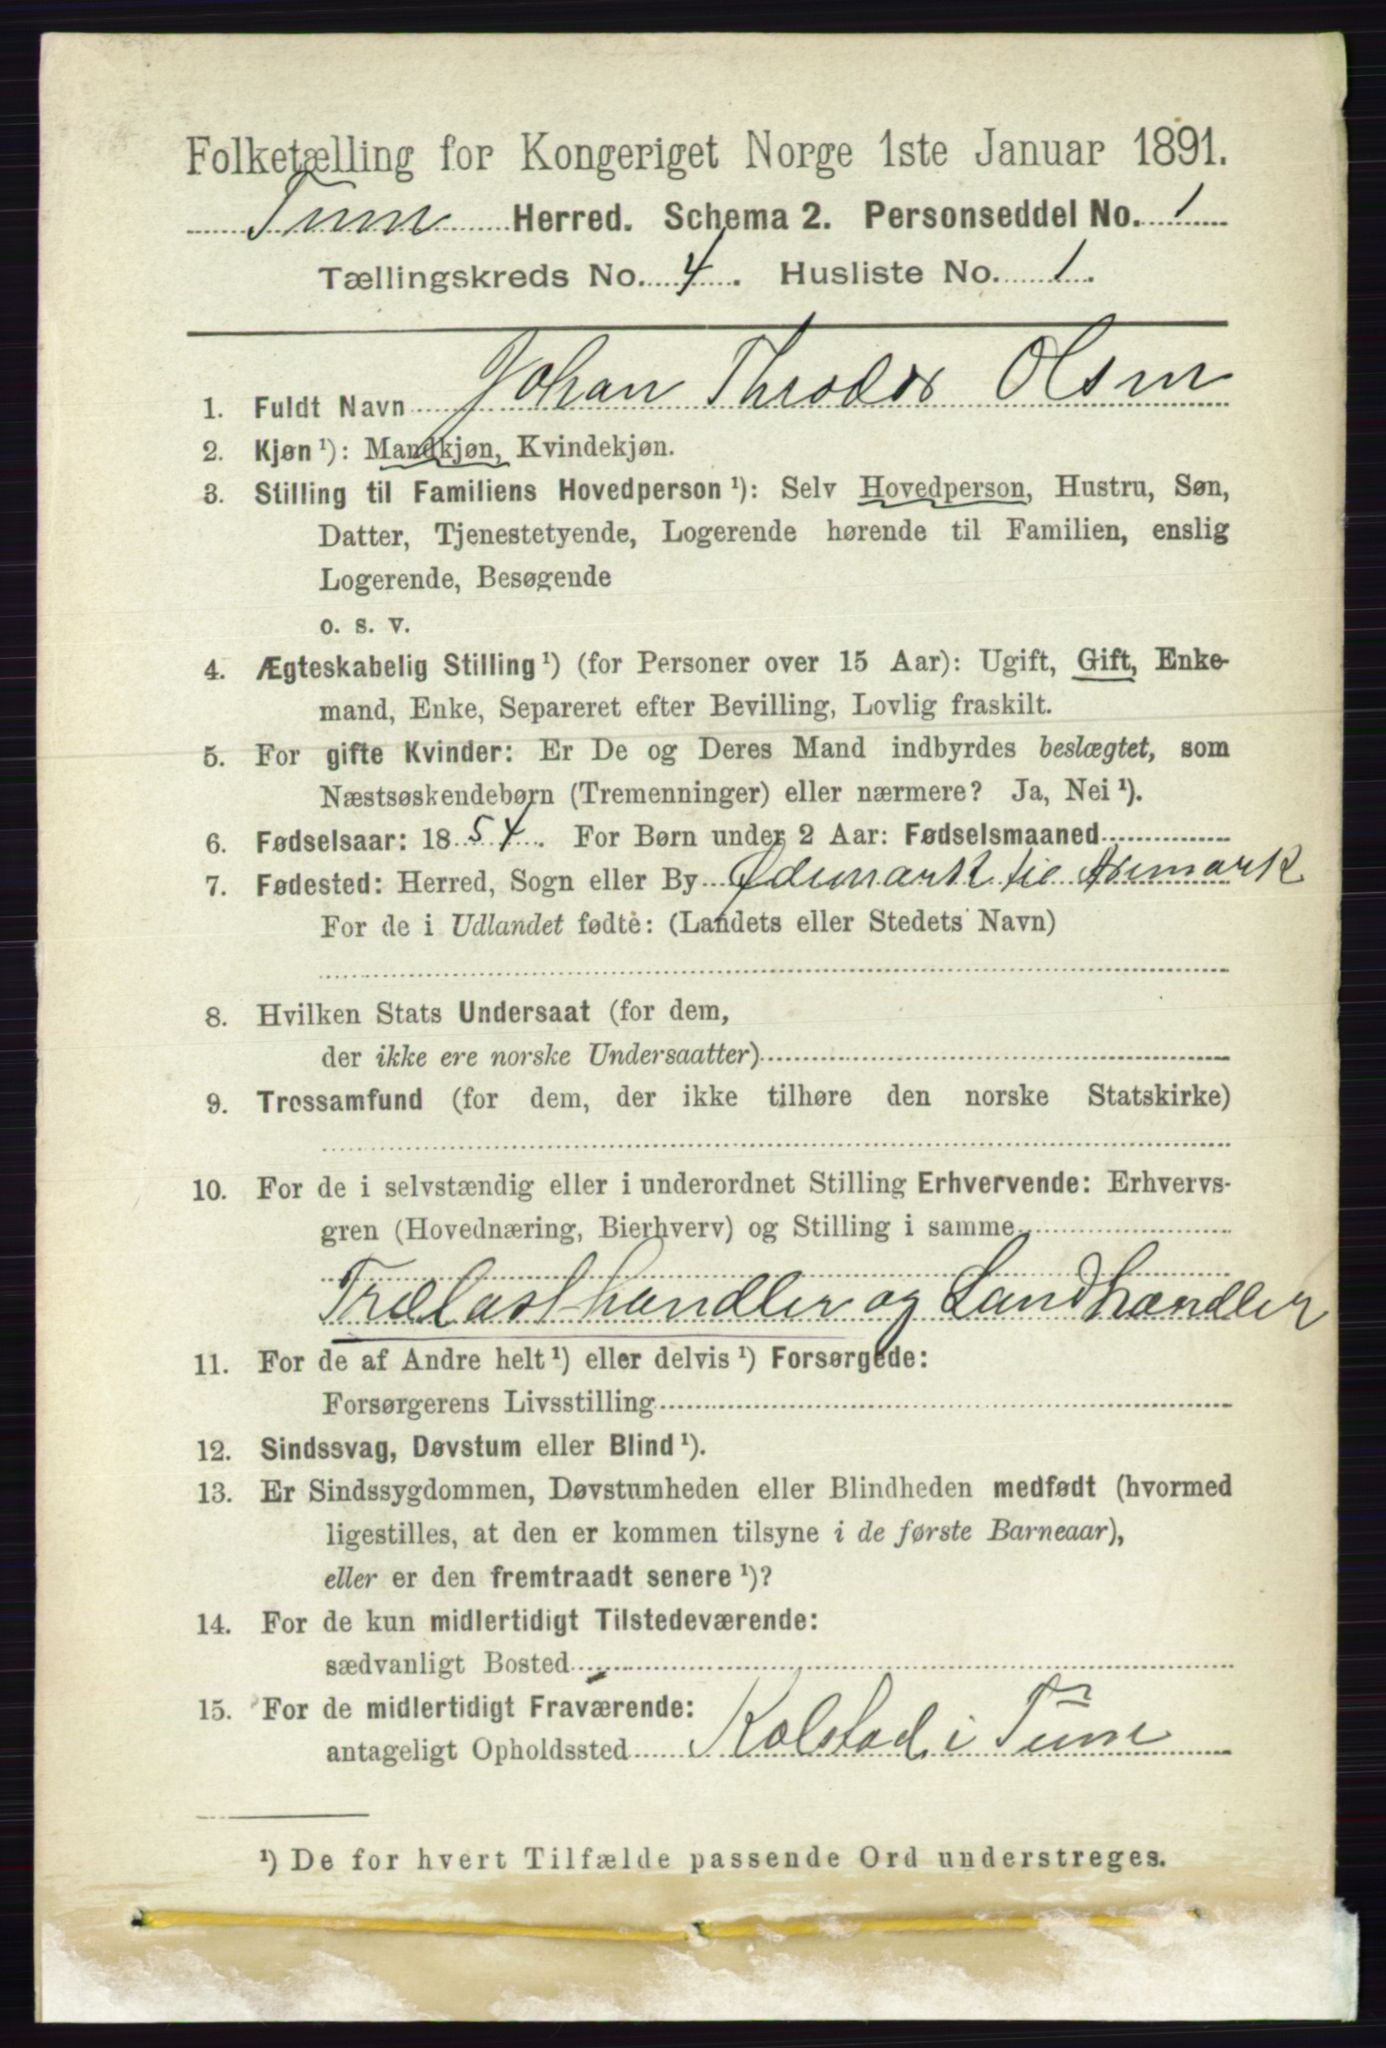 Folketælling for Kongeriget Norge 1ste Januar 1891.
Tune Herred. Schema 2. Personseddel No. 1
Tællingskreds No. 4. Husliste No. 1.
1. Fuldt Navn Johan Theodor Olsen
2. Kjøn ¹): Mandkjøn, Kvindekjøn.
3. Stilling til Familiens Hovedperson ¹): Selv Hovedperson, Hustru, Søn,
Datter, Tjenestetyende, Logerende hørende til Familien, enslig
Logerende, Besøgende
o. s. v.
4. Ægteskabelig Stilling ¹) (for Personer over 15 Aar): Ugift, Gift, Enke-
mand, Enke, Separeret efter Bevilling, Lovlig fraskilt.
5. For gifte Kvinder: Er De og Deres Mand indbyrdes beslægtet, som
Næstsøskendebørn (Tremenninger) eller nærmere? Ja, Nei ¹).
6. Fødselsaar: 1854. For Børn under 2 Aar: Fødselsmaaned
7. Fødested: Herred, Sogn eller By Ødemark til Aremark
For de i Udlandet fødte: (Landets eller Stedets Navn)
8. Hvilken Stats Undersaat (for dem,
der ikke ere norske Undersaatter)
9. Trossamfund (for dem, der ikke tilhøre den norske Statskirke)
10. For de i selvstændig eller i underordnet Stilling Erhvervende: Erhvervs-
gren (Hovednæring, Bierhverv) og Stilling i samme
Trælasthandler og Landhandler
11. For de af Andre helt ¹) eller delvis ¹) Forsørgede:
Forsørgerens Livsstilling
12. Sindssvag, Døvstum eller Blind ¹).
13. Er Sindssygdommen, Døvstumheden eller Blindheden medfødt (hvormed
ligestilles, at den er kommen tilsyne i de første Barneaar),
eller er den fremtraadt senere ¹)?
14. For de kun midlertidigt Tilstedeværende:
sædvanligt Bosted
15. For de midlertidigt Fraværende:
antageligt Opholdssted Kolstad i Tune
¹) De for hvert Tilfælde passende Ord understreges.